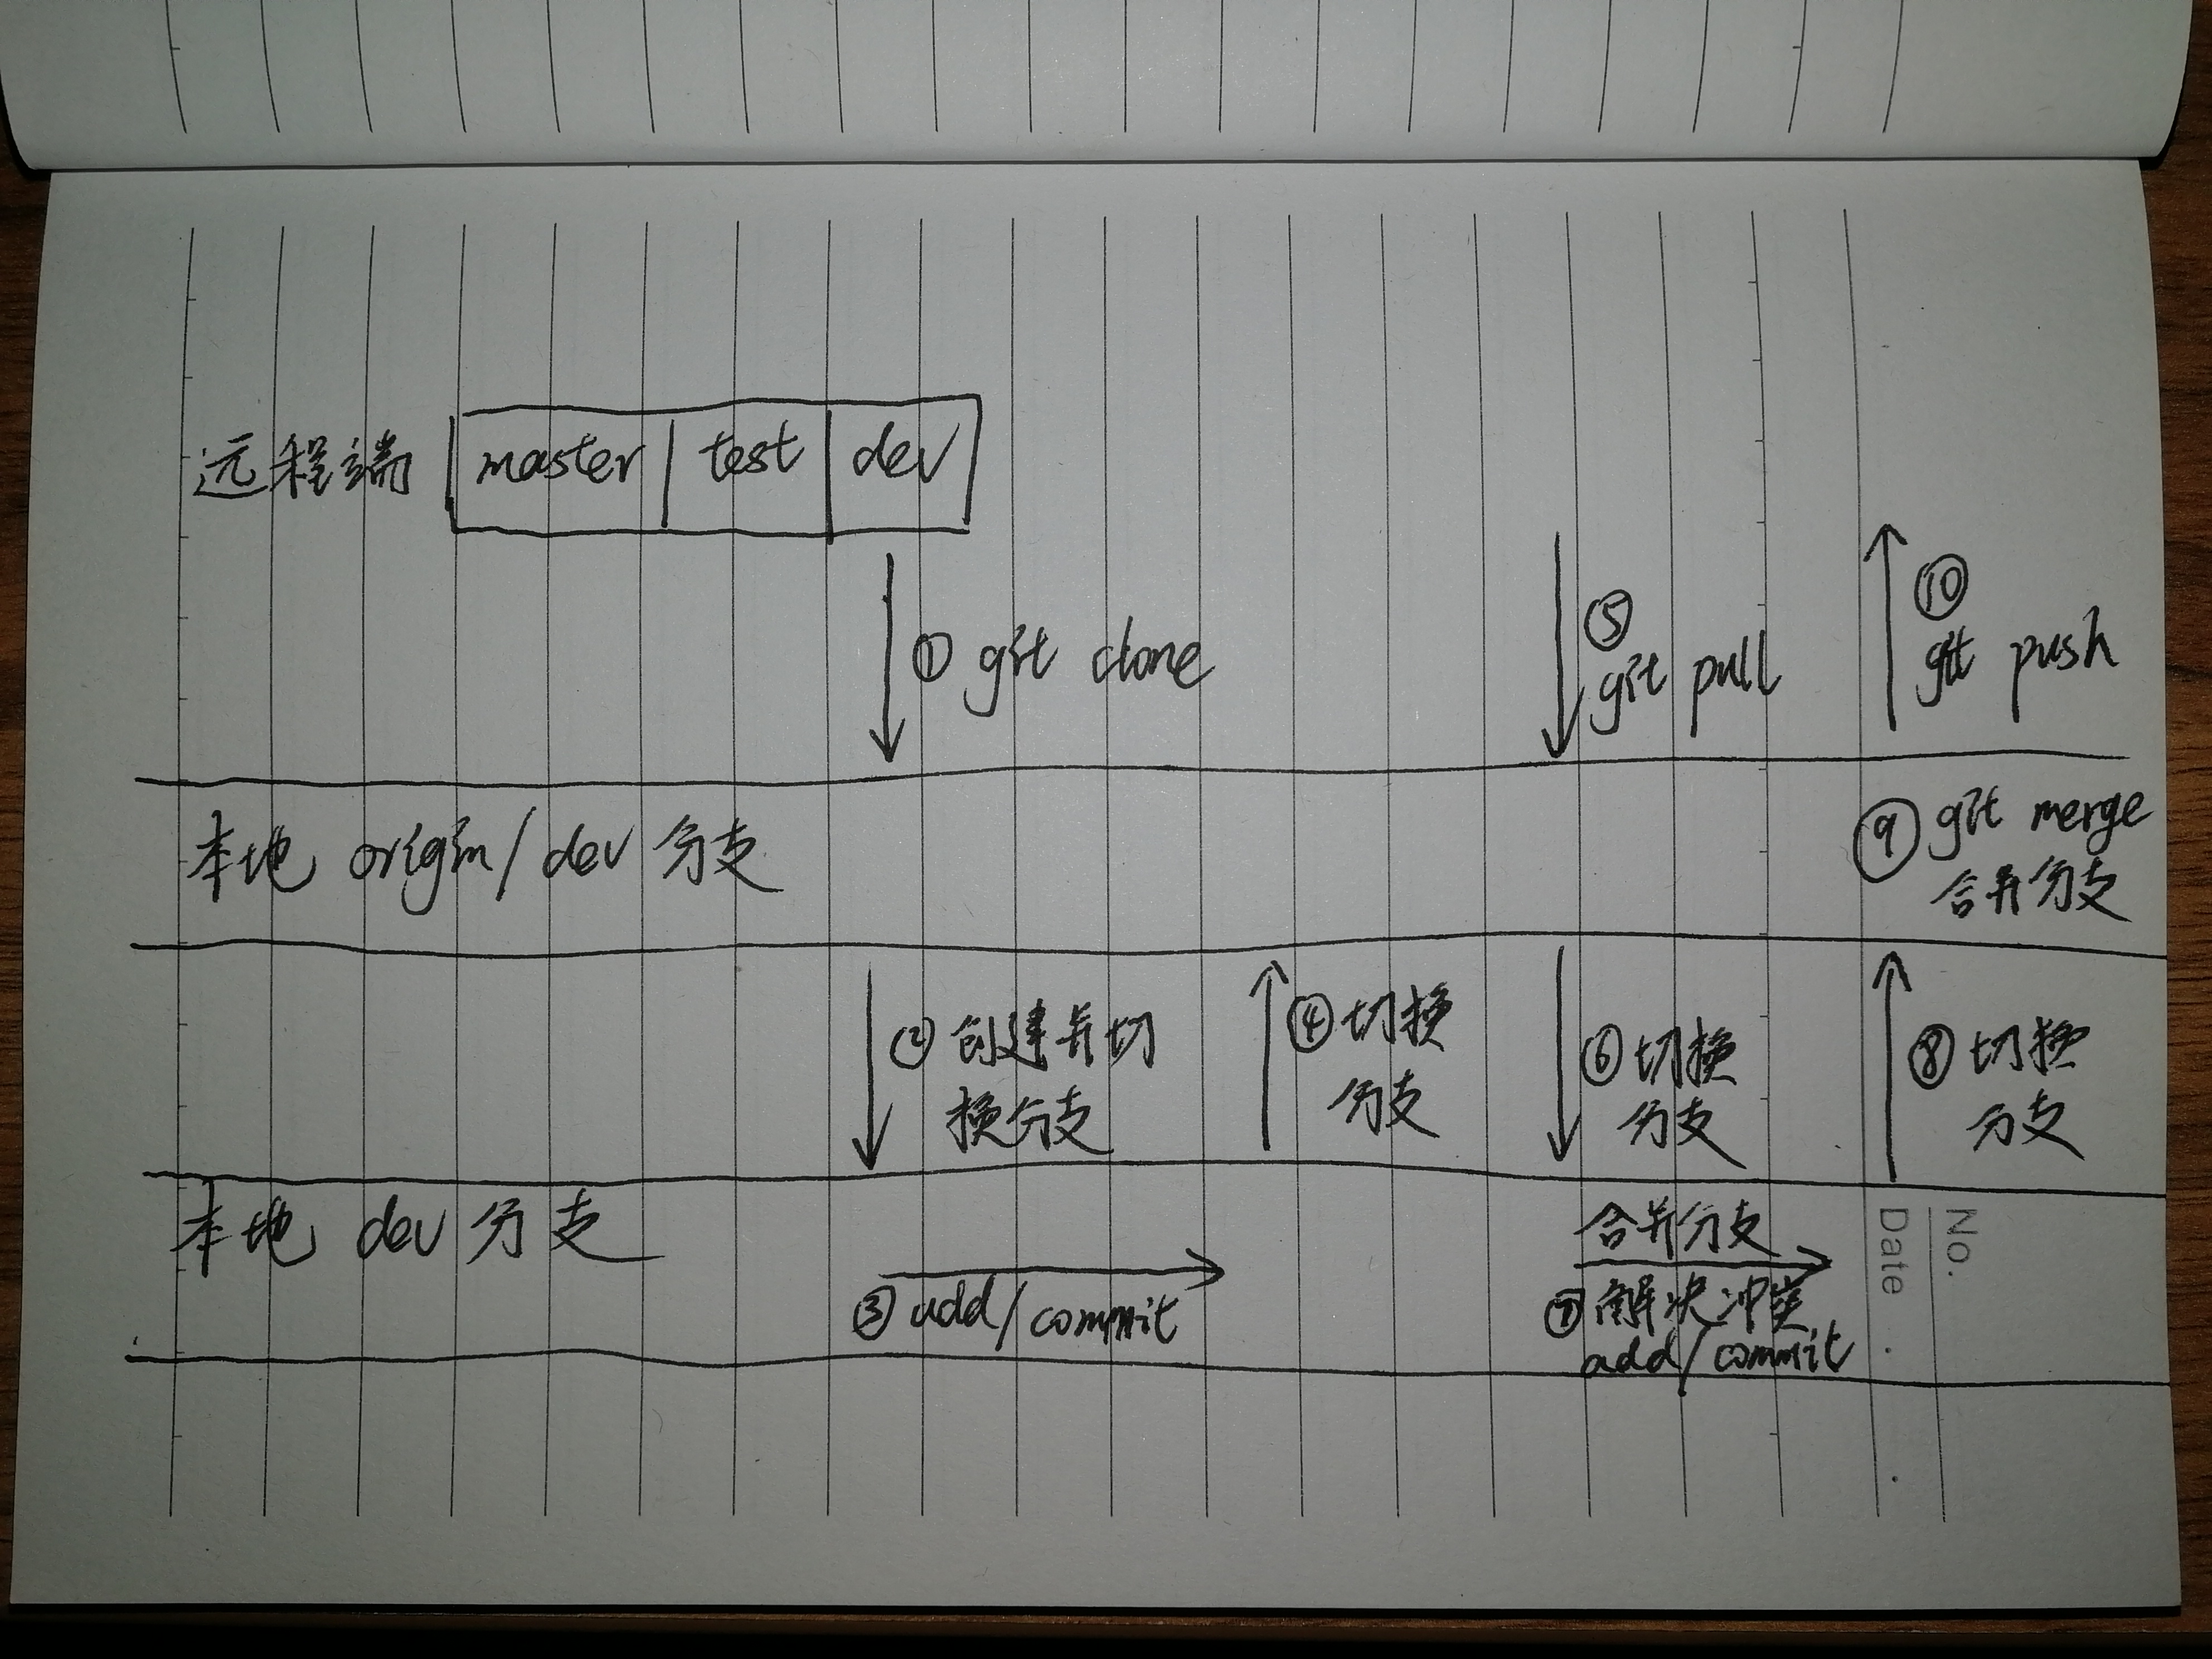 远程端 master test dev
① git clone
⑤
git pull
⑩
git push
本地 origin/dev 分支
⑨ git merge
合并分支
② 创建并切
换分支
④ 切换
分支
⑥ 切换
分支
⑧ 切换
分支
本地 dev 分支
③ add/commit
合并分支
⑦ 解决冲突
add/commit
No.
Date . .